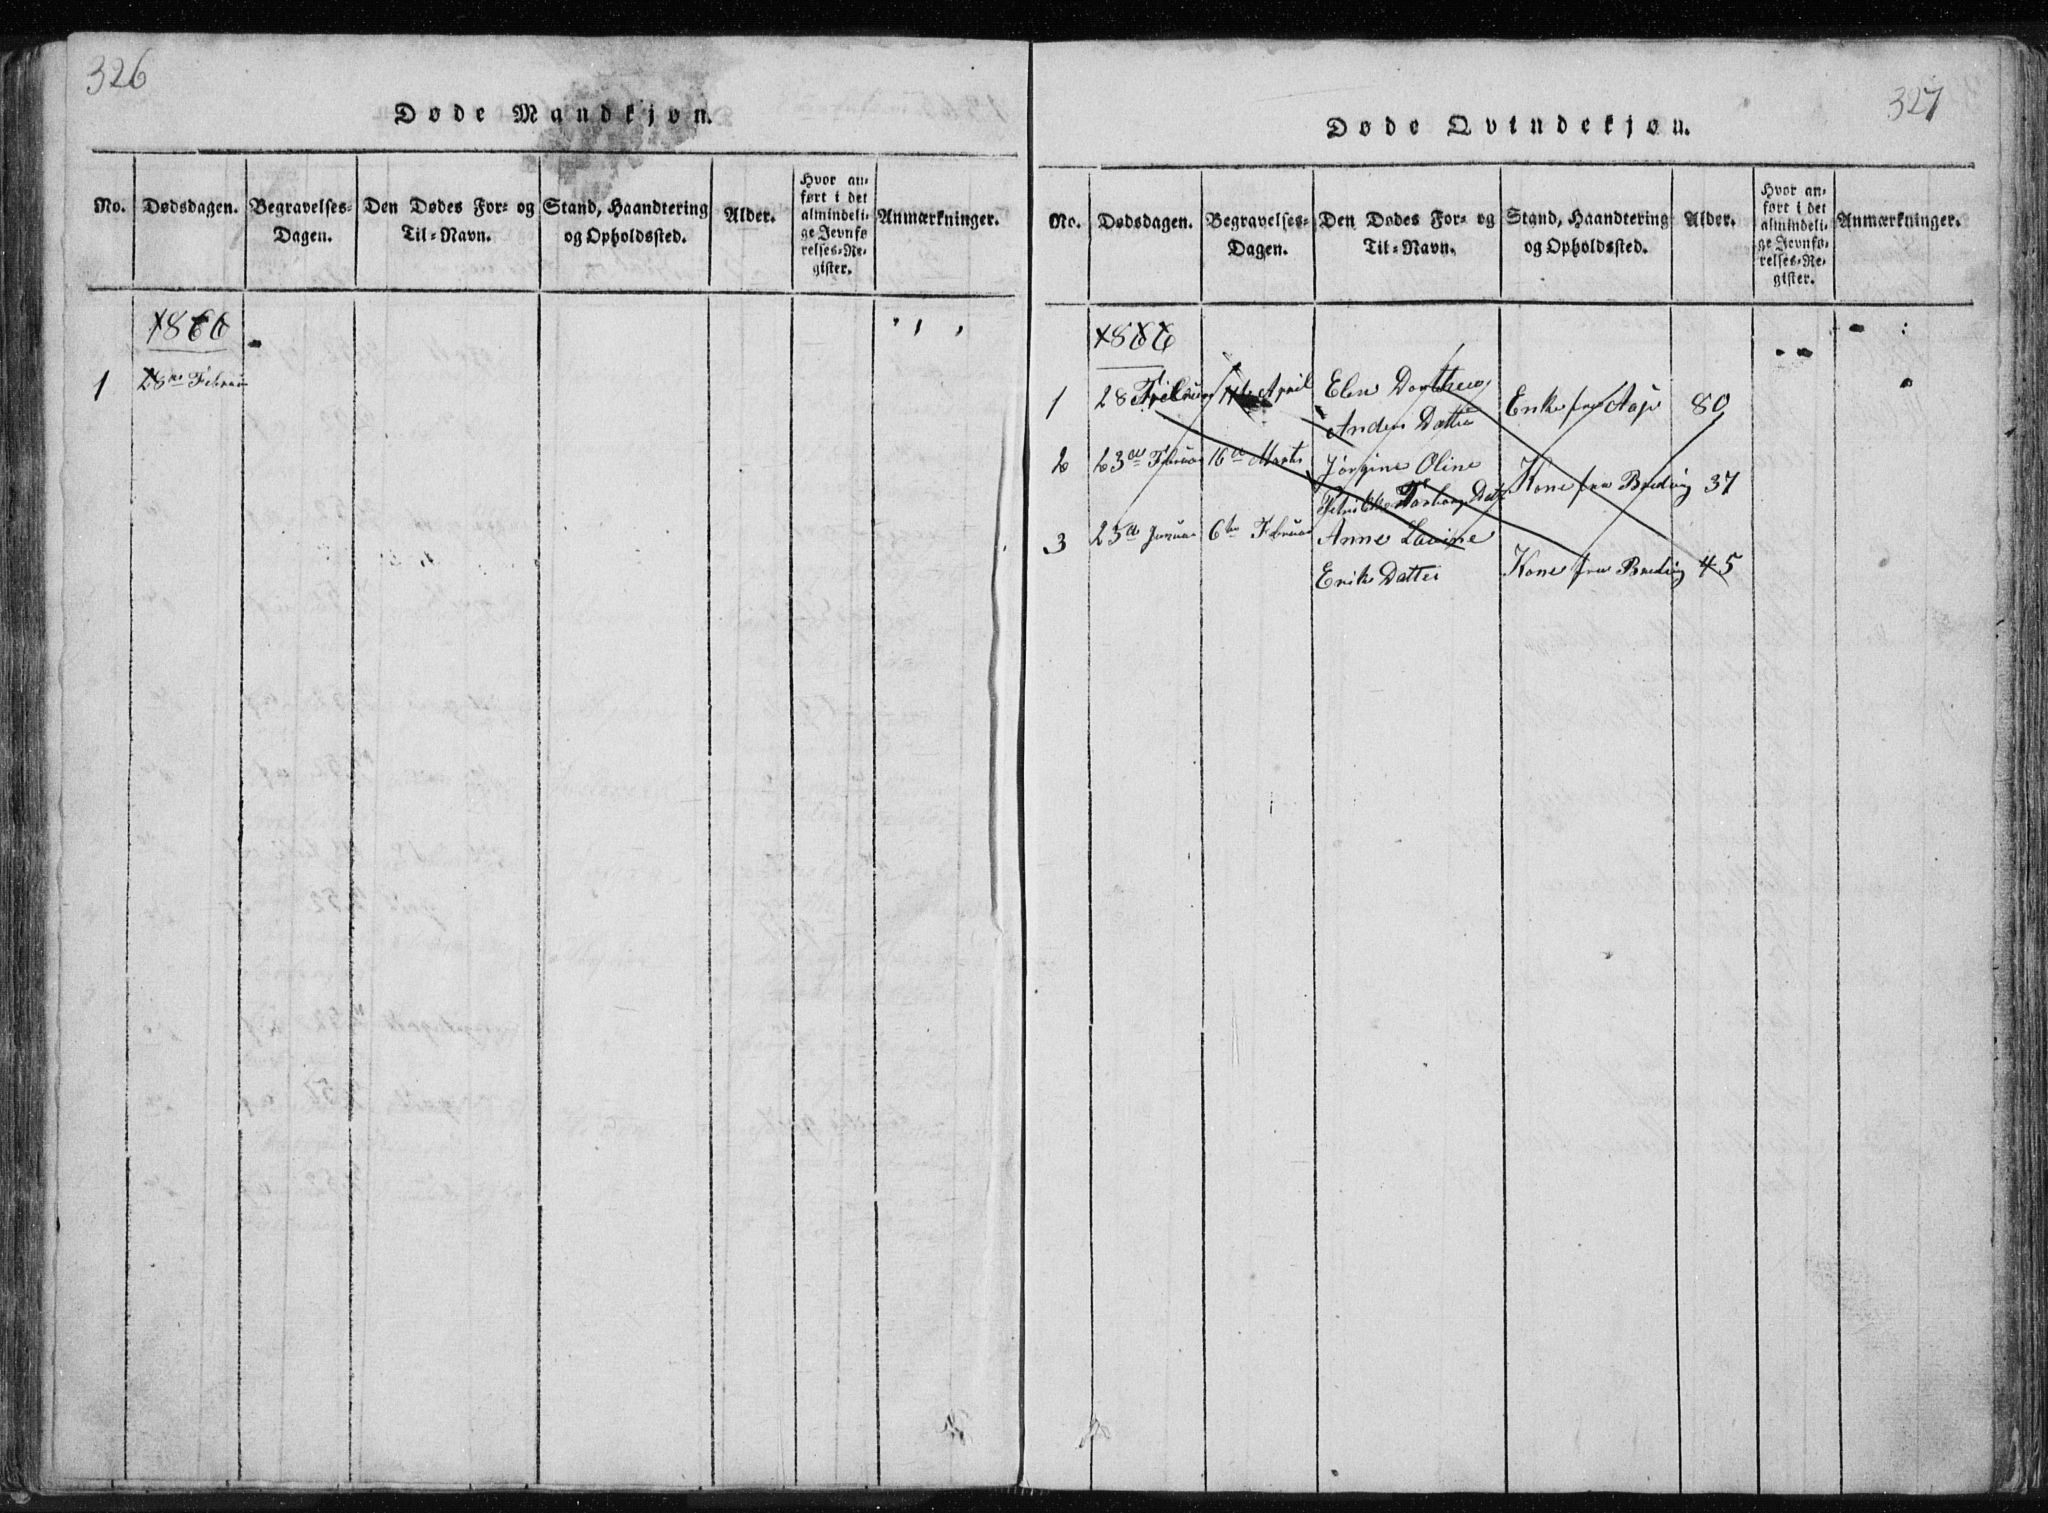 326
Døde Mandkjøn.
No. Dødsdagen. Begravelses-Dagen. Den Dødes For- og Til-Navn. Stand, Haandtering og Opholdssted. Alder. Hvor anført i det almindelige Jevnførelses-Register. Anmærkninger.
1866
1 28 Februar
327
Døde Qvindekjøn.
No. Dødsdagen. Begravelses-Dagen. Den Dødes For- og Til-Navn. Stand, Haandtering og Opholdssted. Alder. Hvor anført i det almindelige Jevnførelses-Register. Anmærkninger.
1866
1 28 Februar April Elen Dorthea
Anders Datter Enke fra Aaje 80
2 23de Februar 16de Marts Jørgine Oline
Datt Kone fra Breding 37
3 25de Januar 6te Februar Anne Lavine
Erik Datter Kone fra Breding 45